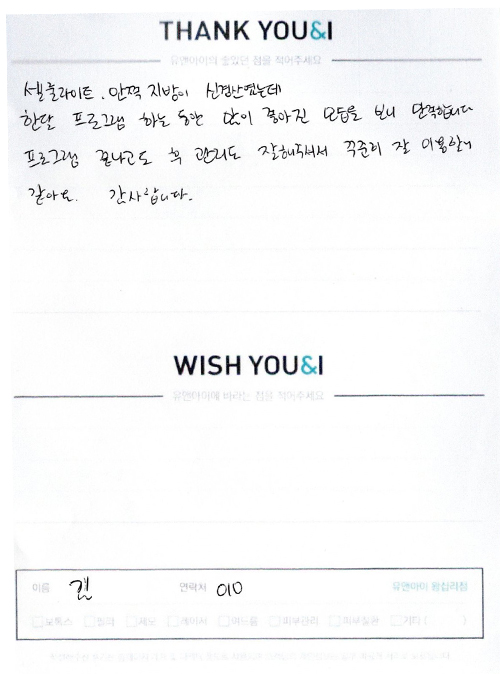 THANK YOU&I
유앤아이의 좋았던 점을 적어주세요
셀룰라이트, 안쪽 지방이 신경쓰였는데
한달 프로그램 하는 동안 많이 좋아진 모습을 보니 만족합니다
프로그램 끝나고도 꼭 관리도 잘해주셔서 꾸준히 잘 이용할거
같아요. 감사합니다.
WISH YOU&I
유앤아이에 바라는 점을 적어주세요
이름 연락처 010 유앤아이 왕십리점
보톡스 필러 제모 레이저 여드름 피부관리 피부질환 기타 ( )